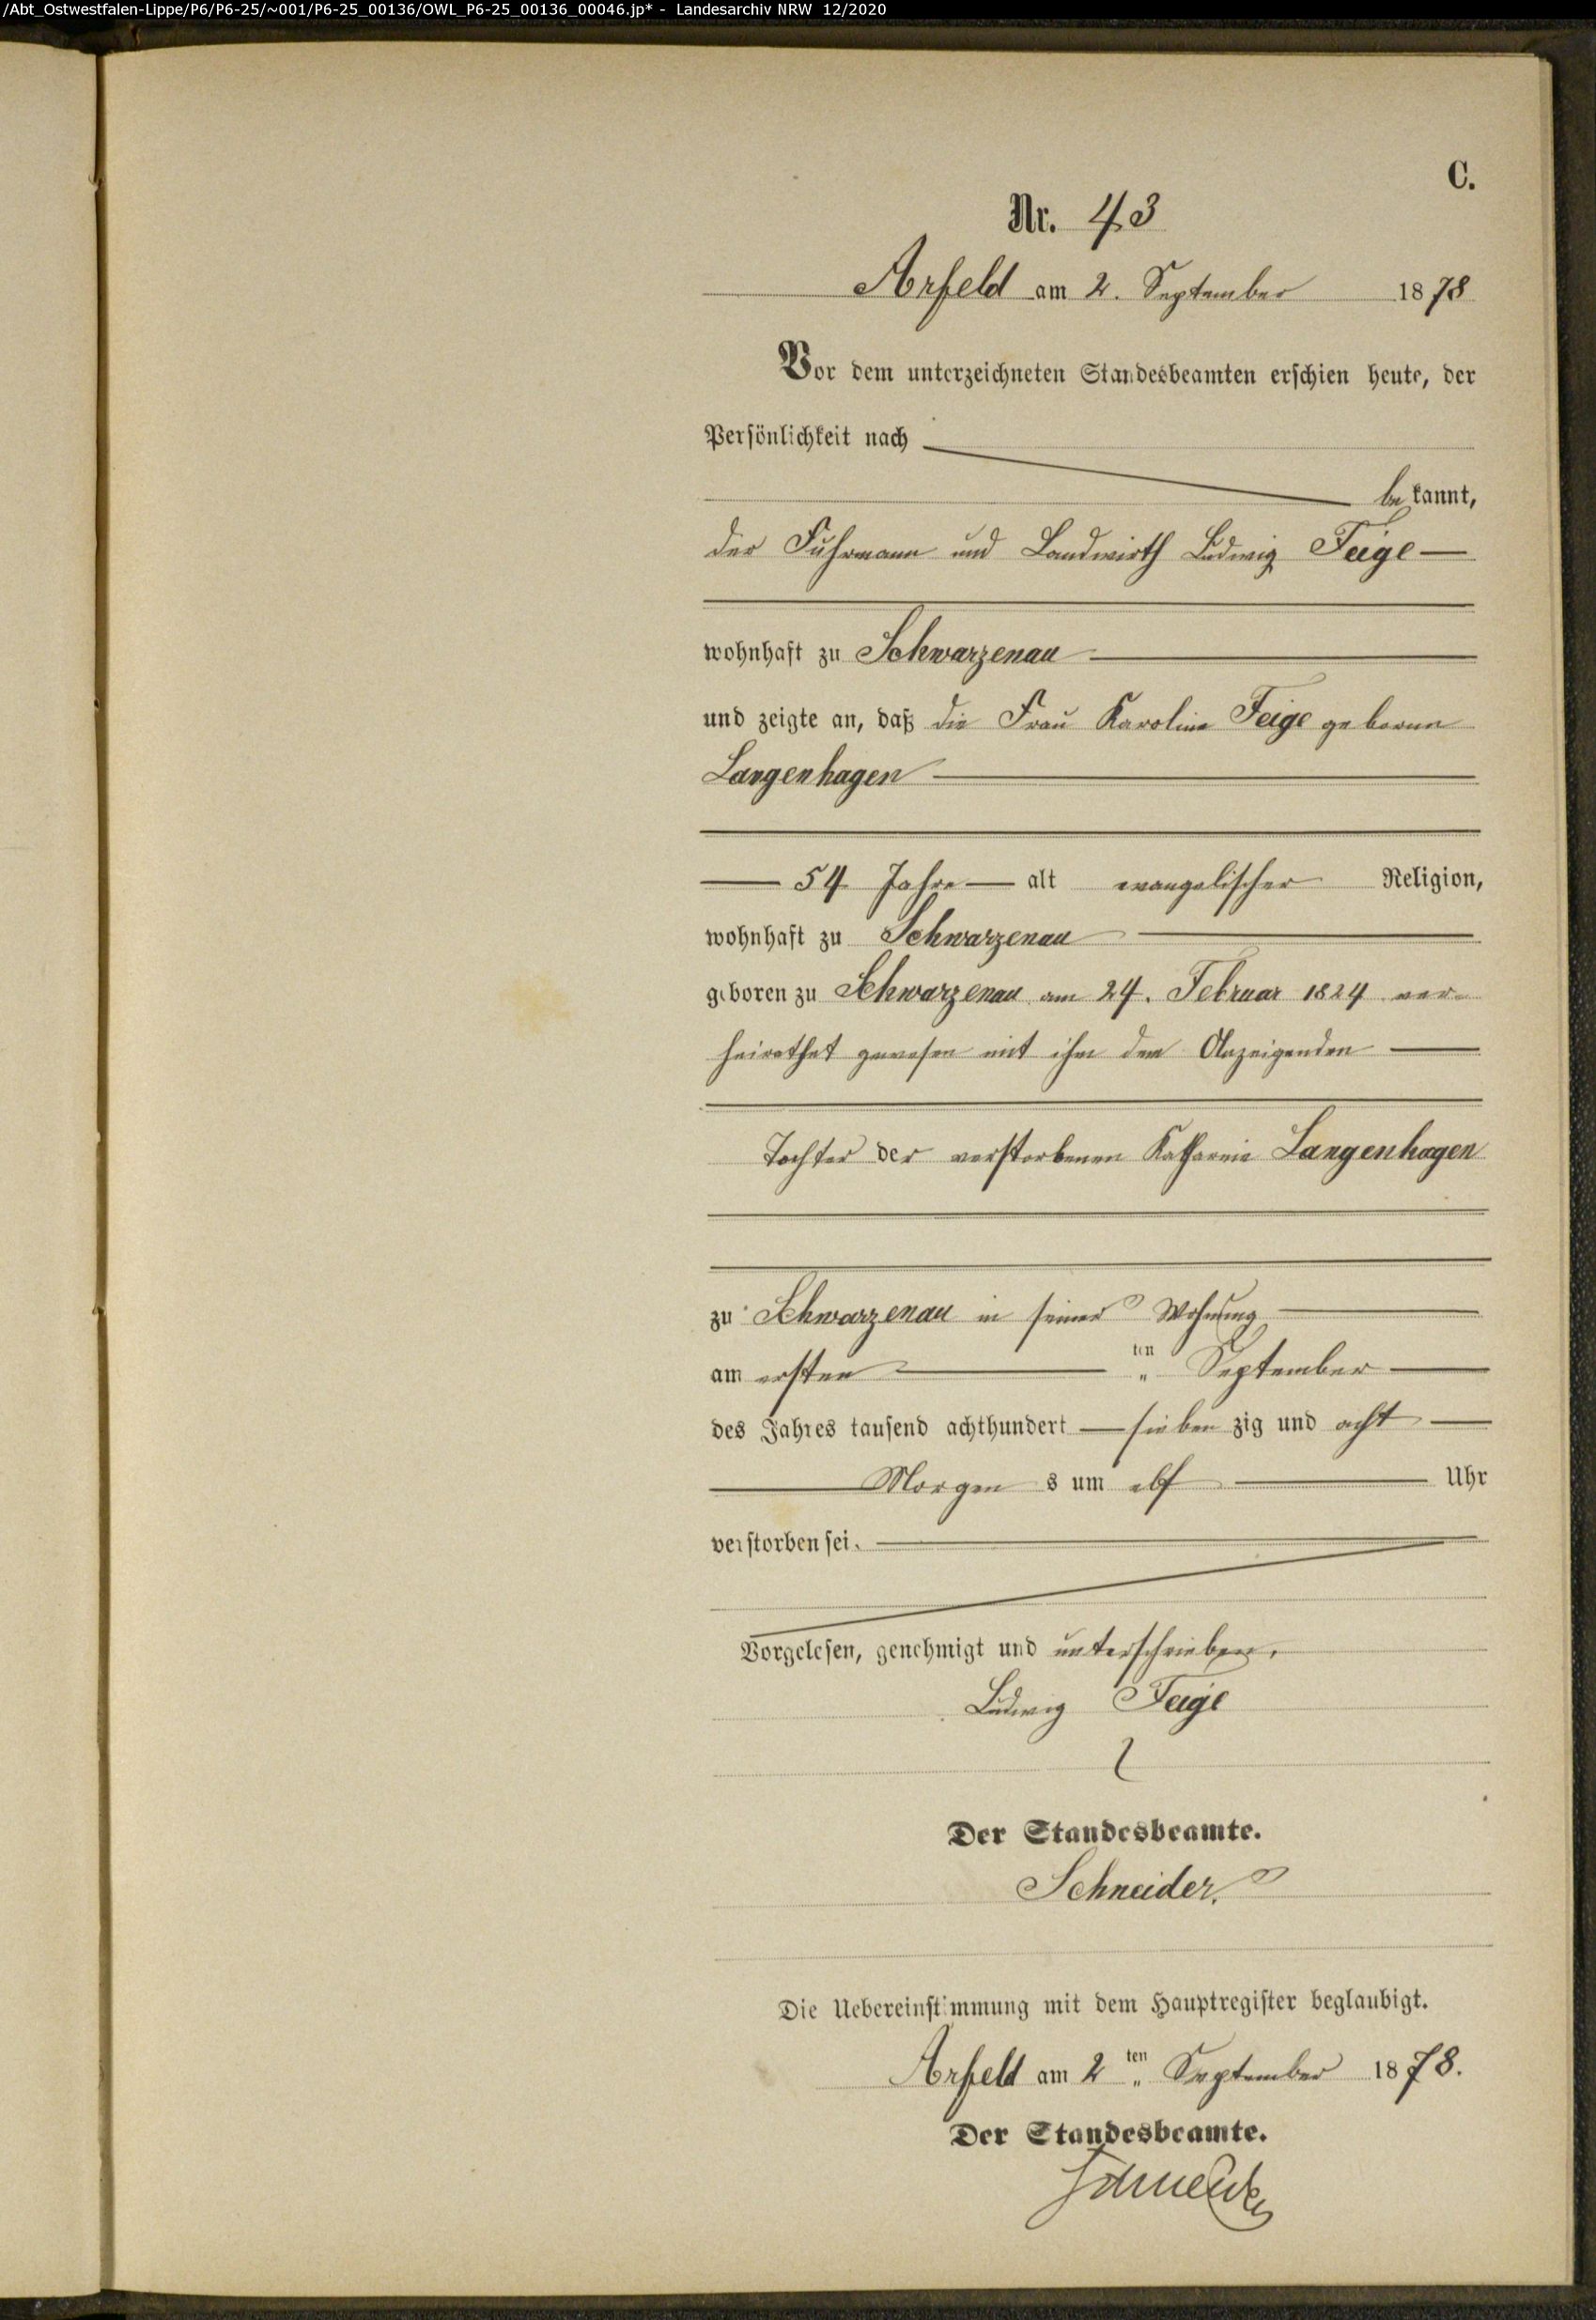 /Abt_Ostwestfalen-Lippe/P6/P6-25/~001/P6-25_00136/OWL_P6-25_00136_00046.jp* - Landesarchiv NRW 12/2020
C.
Nr. 43
Arfeld am 2. September 1878
Vor dem unterzeichneten Standesbeamten erschien heute, der
Persönlichkeit nach
bekannt,
der Fuhrmann und Landwirth Ludwig Feige
wohnhaft zu Schwarzenau
und zeigte an, daß die Frau Karoline Feige geborene
Langenhagen
54 Jahre alt evangelischer Religion,
wohnhaft zu Schwarzenau
geboren zu Schwarzenau am 24. Februar 1824 ver-
heirathet gewesen mit ihm dem Anzeigenden
Tochter der verstorbenen Katharine Langenhagen
zu Schwarzenau in seiner Wohnung
am ersten ten September
des Jahres tausend achthundert sieben zig und acht
Morgen s um elf Uhr
verstorben sei.
Vorgelesen, genehmigt und unterschrieben.
Ludwig Feige
Der Standesbeamte.
Schneider.
Die Uebereinstimmung mit dem Hauptregister beglaubigt.
Arfeld am 2 ten September 1878.
Der Standesbeamte.
Schneider